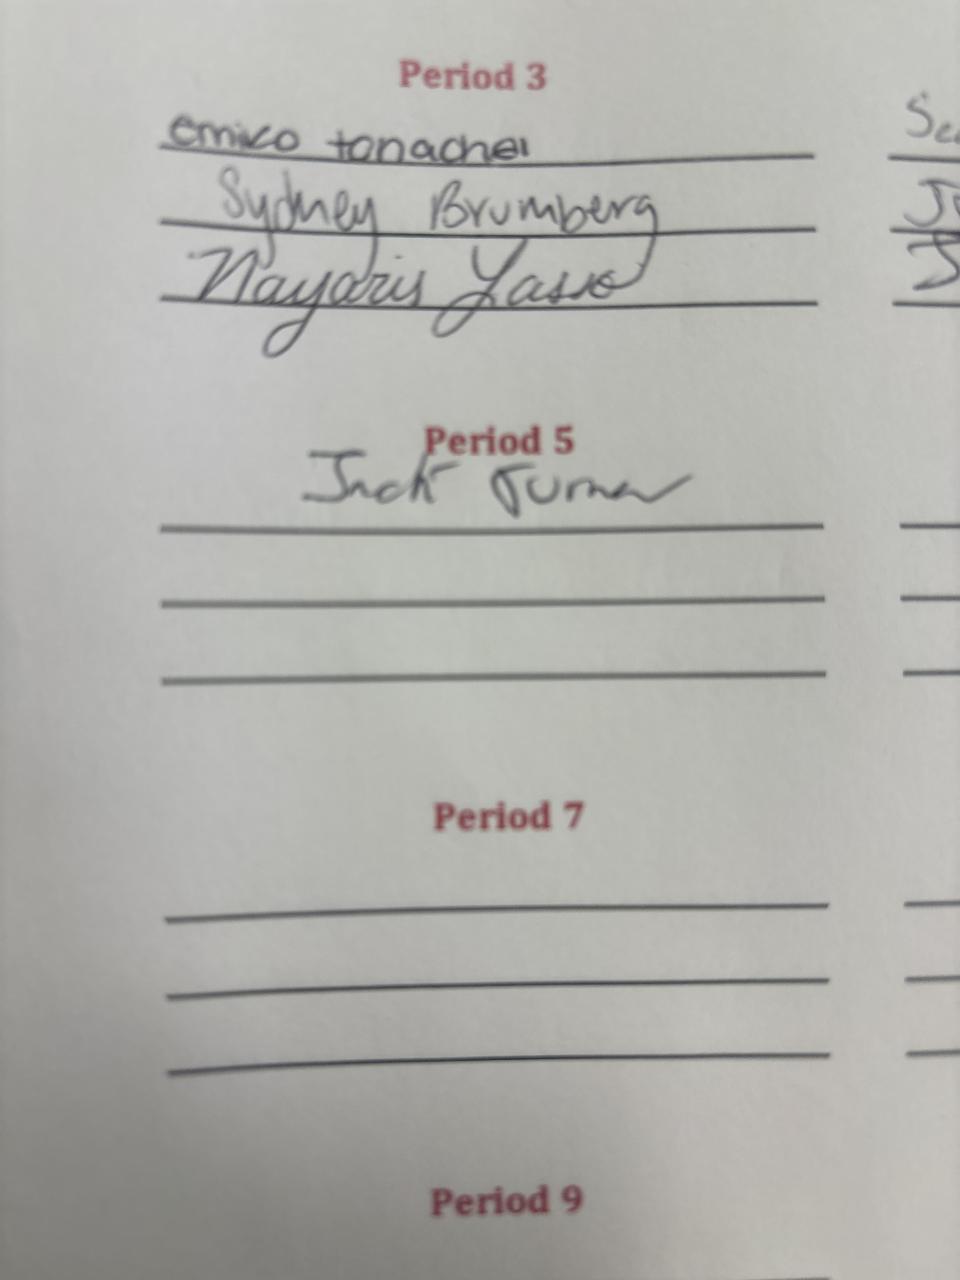 Period 3
emiko tonachel
Sydney Brumberg
Nayaris Lasso
Period 5
Jack Turner
Period 7
Period 9